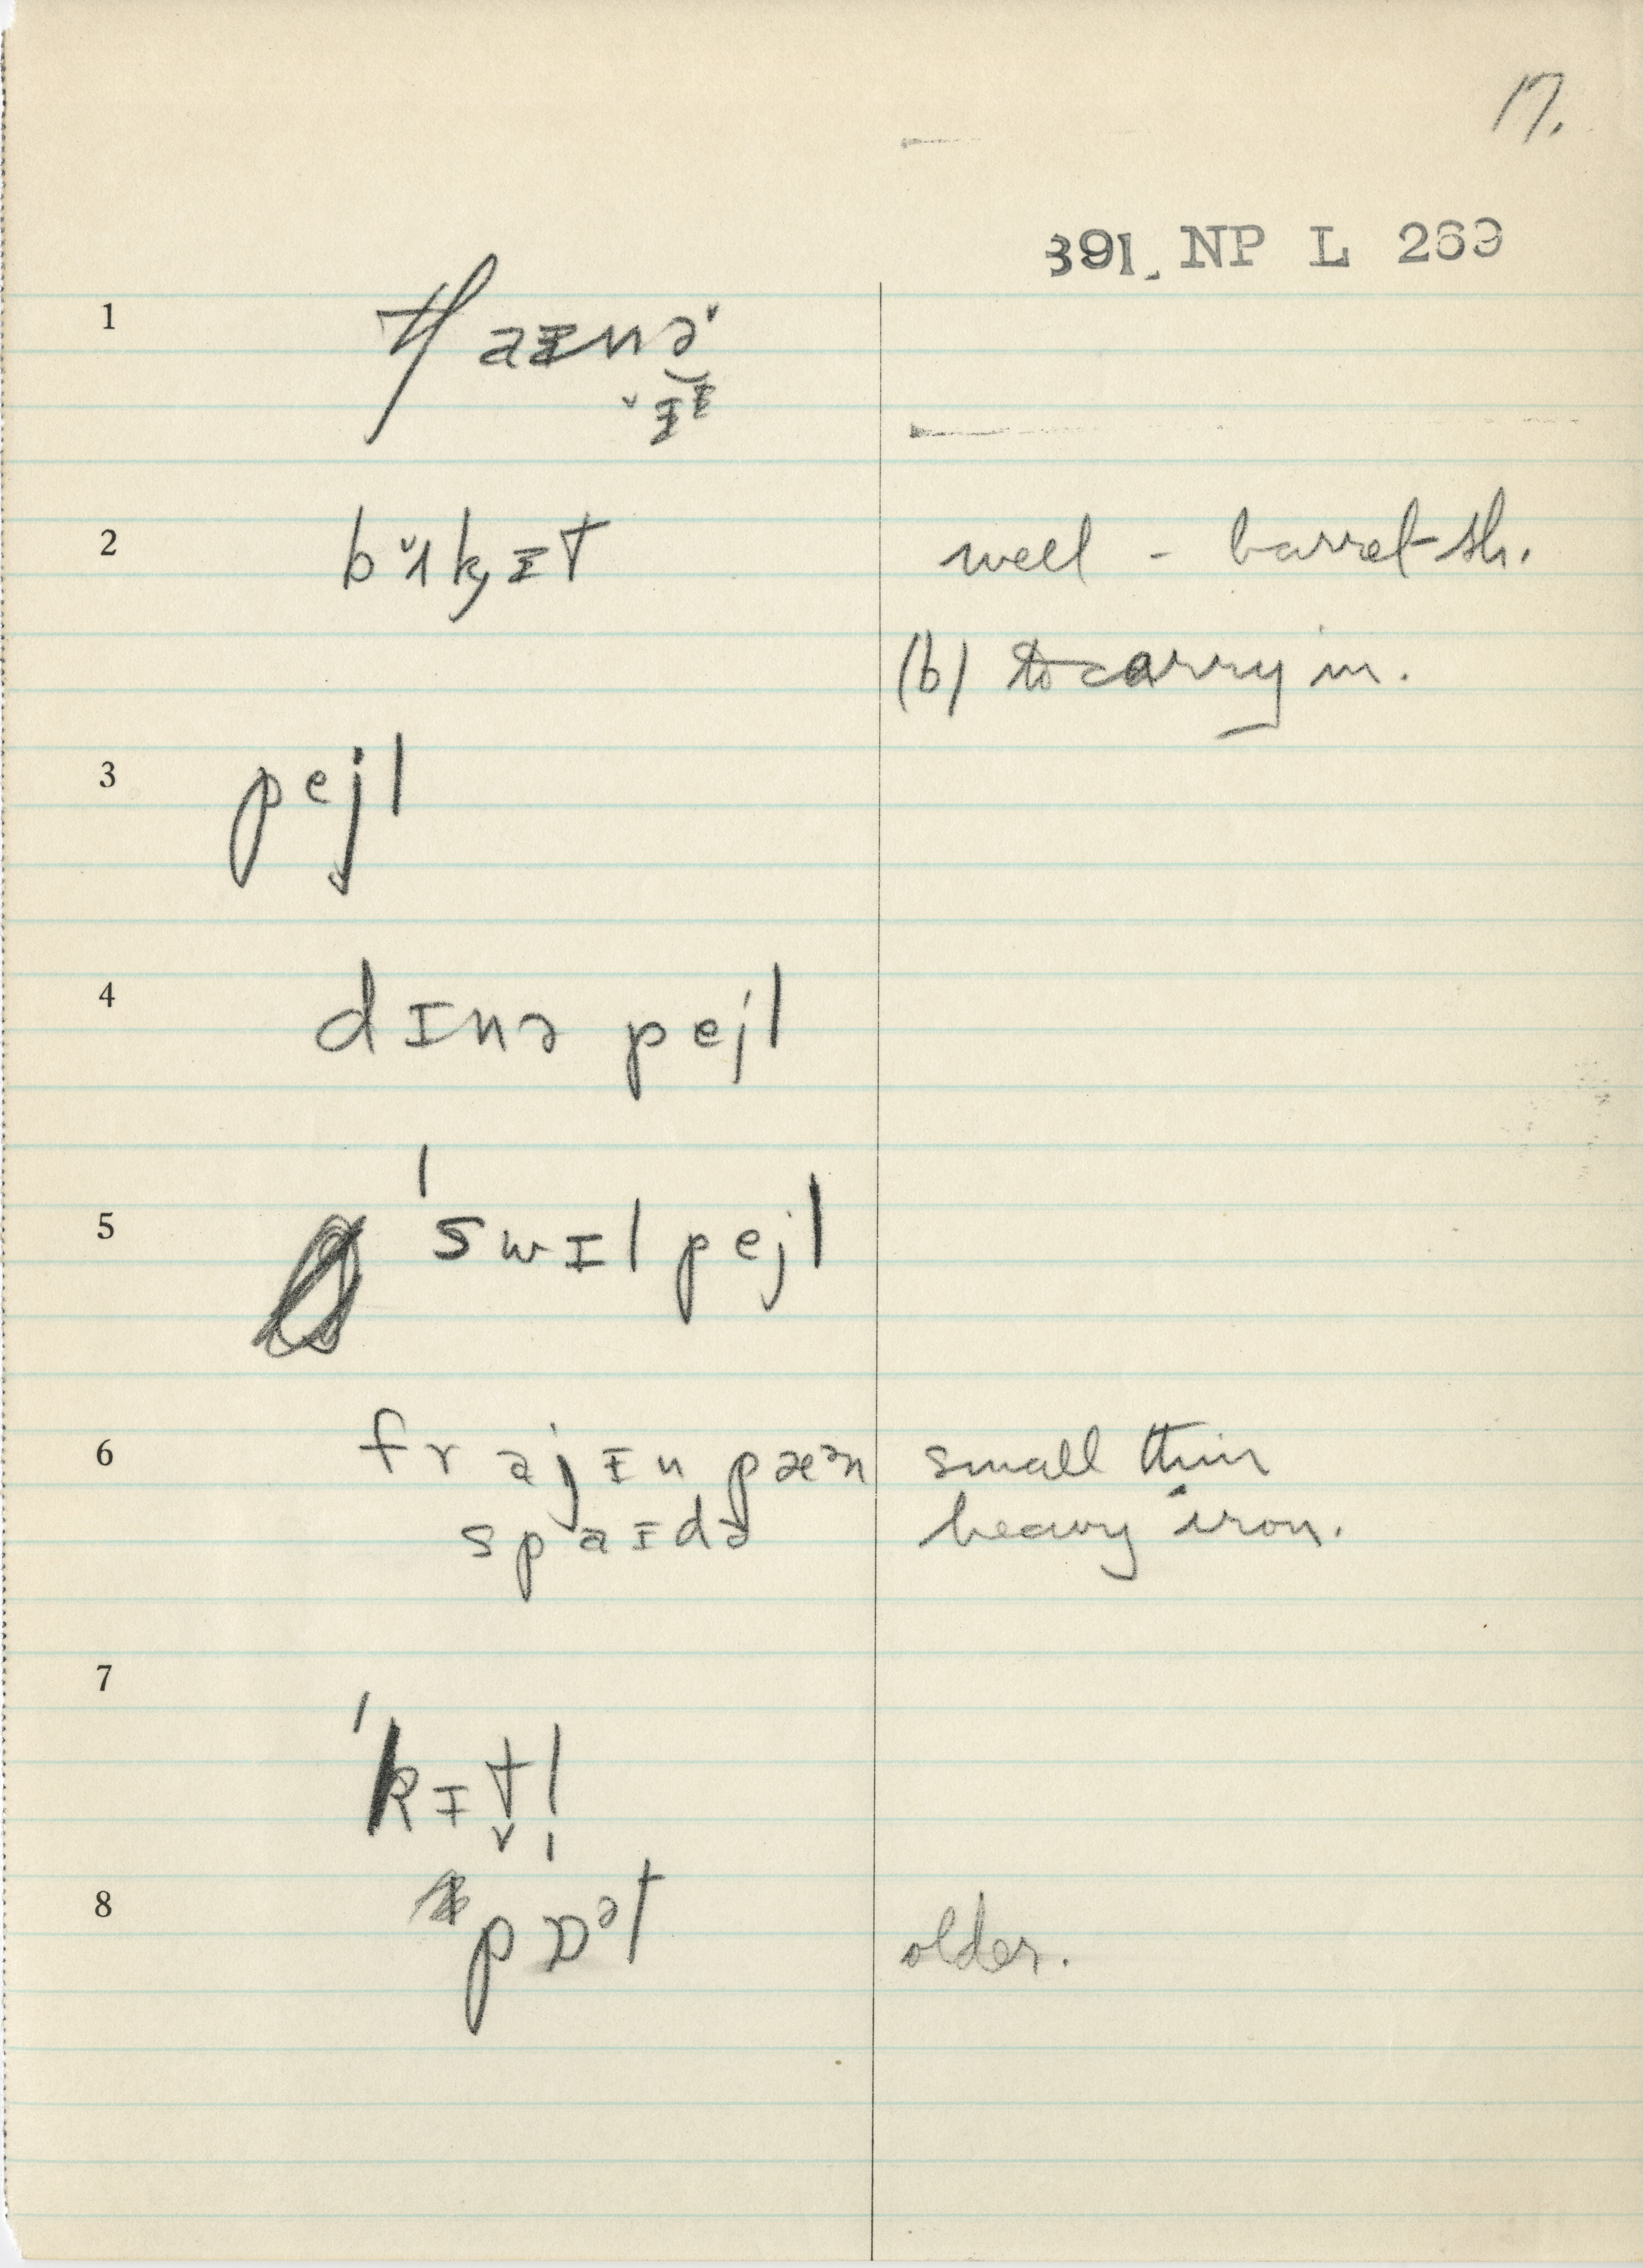 17.
391. NP L 269
1 tʃaɪnə
2 bʌkɪt well - barrel-sh.
(b) to carry in.
3 pejl
4 dɪnə pejl
5 ˈswɪl pejl
6 frajɪn pæᵊn small thin
spaɪdə heavy iron.
7
ˈkɪt̬l̩
8 pɒᵊt older.